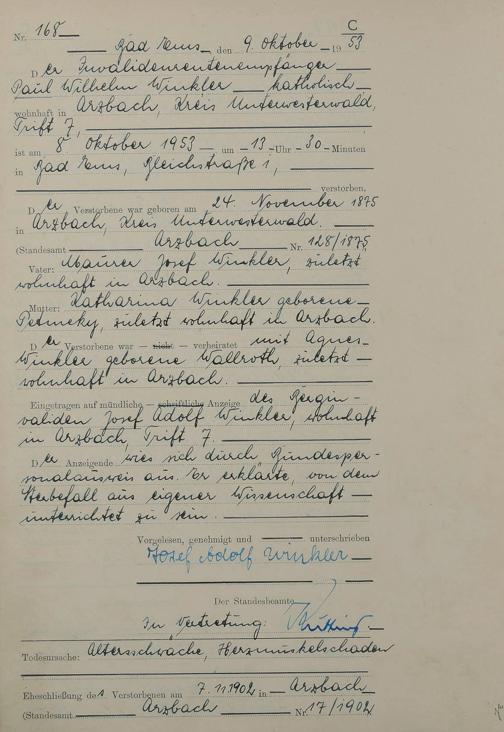 Nr. 168 C
Bad Ems, den 9. Oktober 19 53
Der Invalidenrentenempfänger
Paul Wilhelm Winkler katholisch
wohnhaft in Arzbach, Kreis Unterwesterwald,
Trift 7,
ist am 8. Oktober 1953 um 13 Uhr 30 Minuten
in Bad Ems, Bleichstraße 1,
verstorben,
Der Verstorbene war geboren am 24. November 1875
in Arzbach, Kreis Unterwesterwald.
(Standesamt Arzbach Nr. 128/1875
Vater: Maurer Josef Winkler, zuletzt
wohnhaft in Arzbach.
Mutter: Katharina Winkler geborene
zuletzt wohnhaft in Arzbach.
Der Verstorbene war — nicht — verheiratet mit Agnes
Winkler geborene Wallroth, zuletzt
wohnhaft in Arzbach.
Eingetragen auf mündliche — schriftliche Anzeige des Berginvaliden
Josef Adolf Winkler, wohnhaft
in Arzbach, Trift 7.
Der Anzeigende wies sich durch Bundesper-
sonalausweis aus. Er erklärte, von dem
Sterbefall aus eigener Wissenschaft
unterrichtet zu sein.
Vorgelesen, genehmigt und unterschrieben
Josef Adolf Winkler
Der Standesbeamte
In Vertretung:
Todesursache: Altersschwäche, Herzmuskelschaden
Eheschließung des Verstorbenen am 7.11.1902 in Arzbach
(Standesamt Arzbach Nr. 17/1902